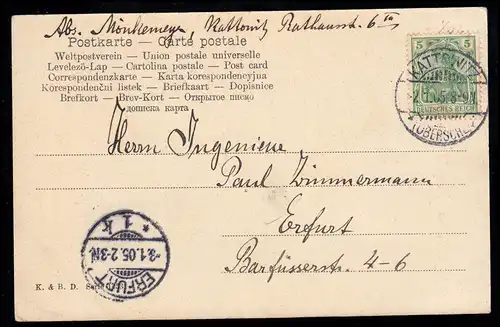 Abs. Mönkemeyer, Kattowitz Rathausstr. 6 IIa
Postkarte — Carte postale
Weltpostverein — Union postale universelle
Levelező-Lap — Cartolina postale — Post card
Correspondenzkarte — Karta korespondencyjna
Korespondenční listek — Briefkaart — Dopisnice
Brefkort — Brev-Kort — Открытое письмо
дописна карта
5 5
DEUTSCHES REICH
KATTOWITZ
(OBERSCHL.)
Herrn Ingenieur
Paul Zimmermann
Erfurt
Barfüsserstr. 4-6
* 1 k
-3.1.05.2-3N.
ERFURT
K. & B. D.